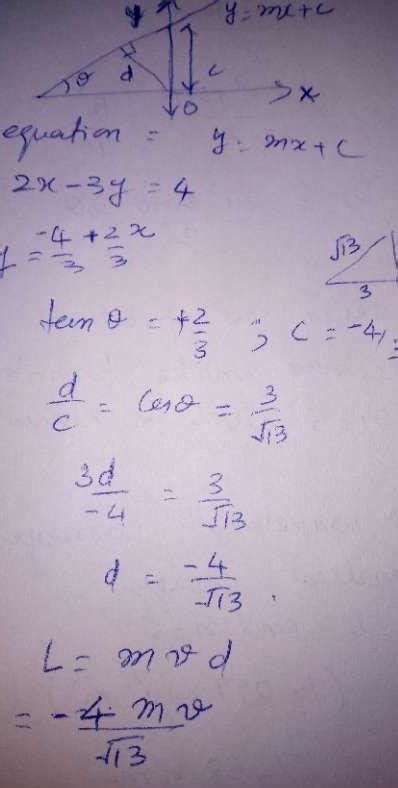 y y = mx + c
θ d c
O x
equation = y = mx + c
2x - 3y = 4
y = -4/3 + 2/3 x
√13
3
tan θ = +2/3 ; c = -4/3
d/c = cos θ = 3/√13
3d/-4 = 3/√13
d = -4/√13 .
L = m v d
= -4 m v/√13